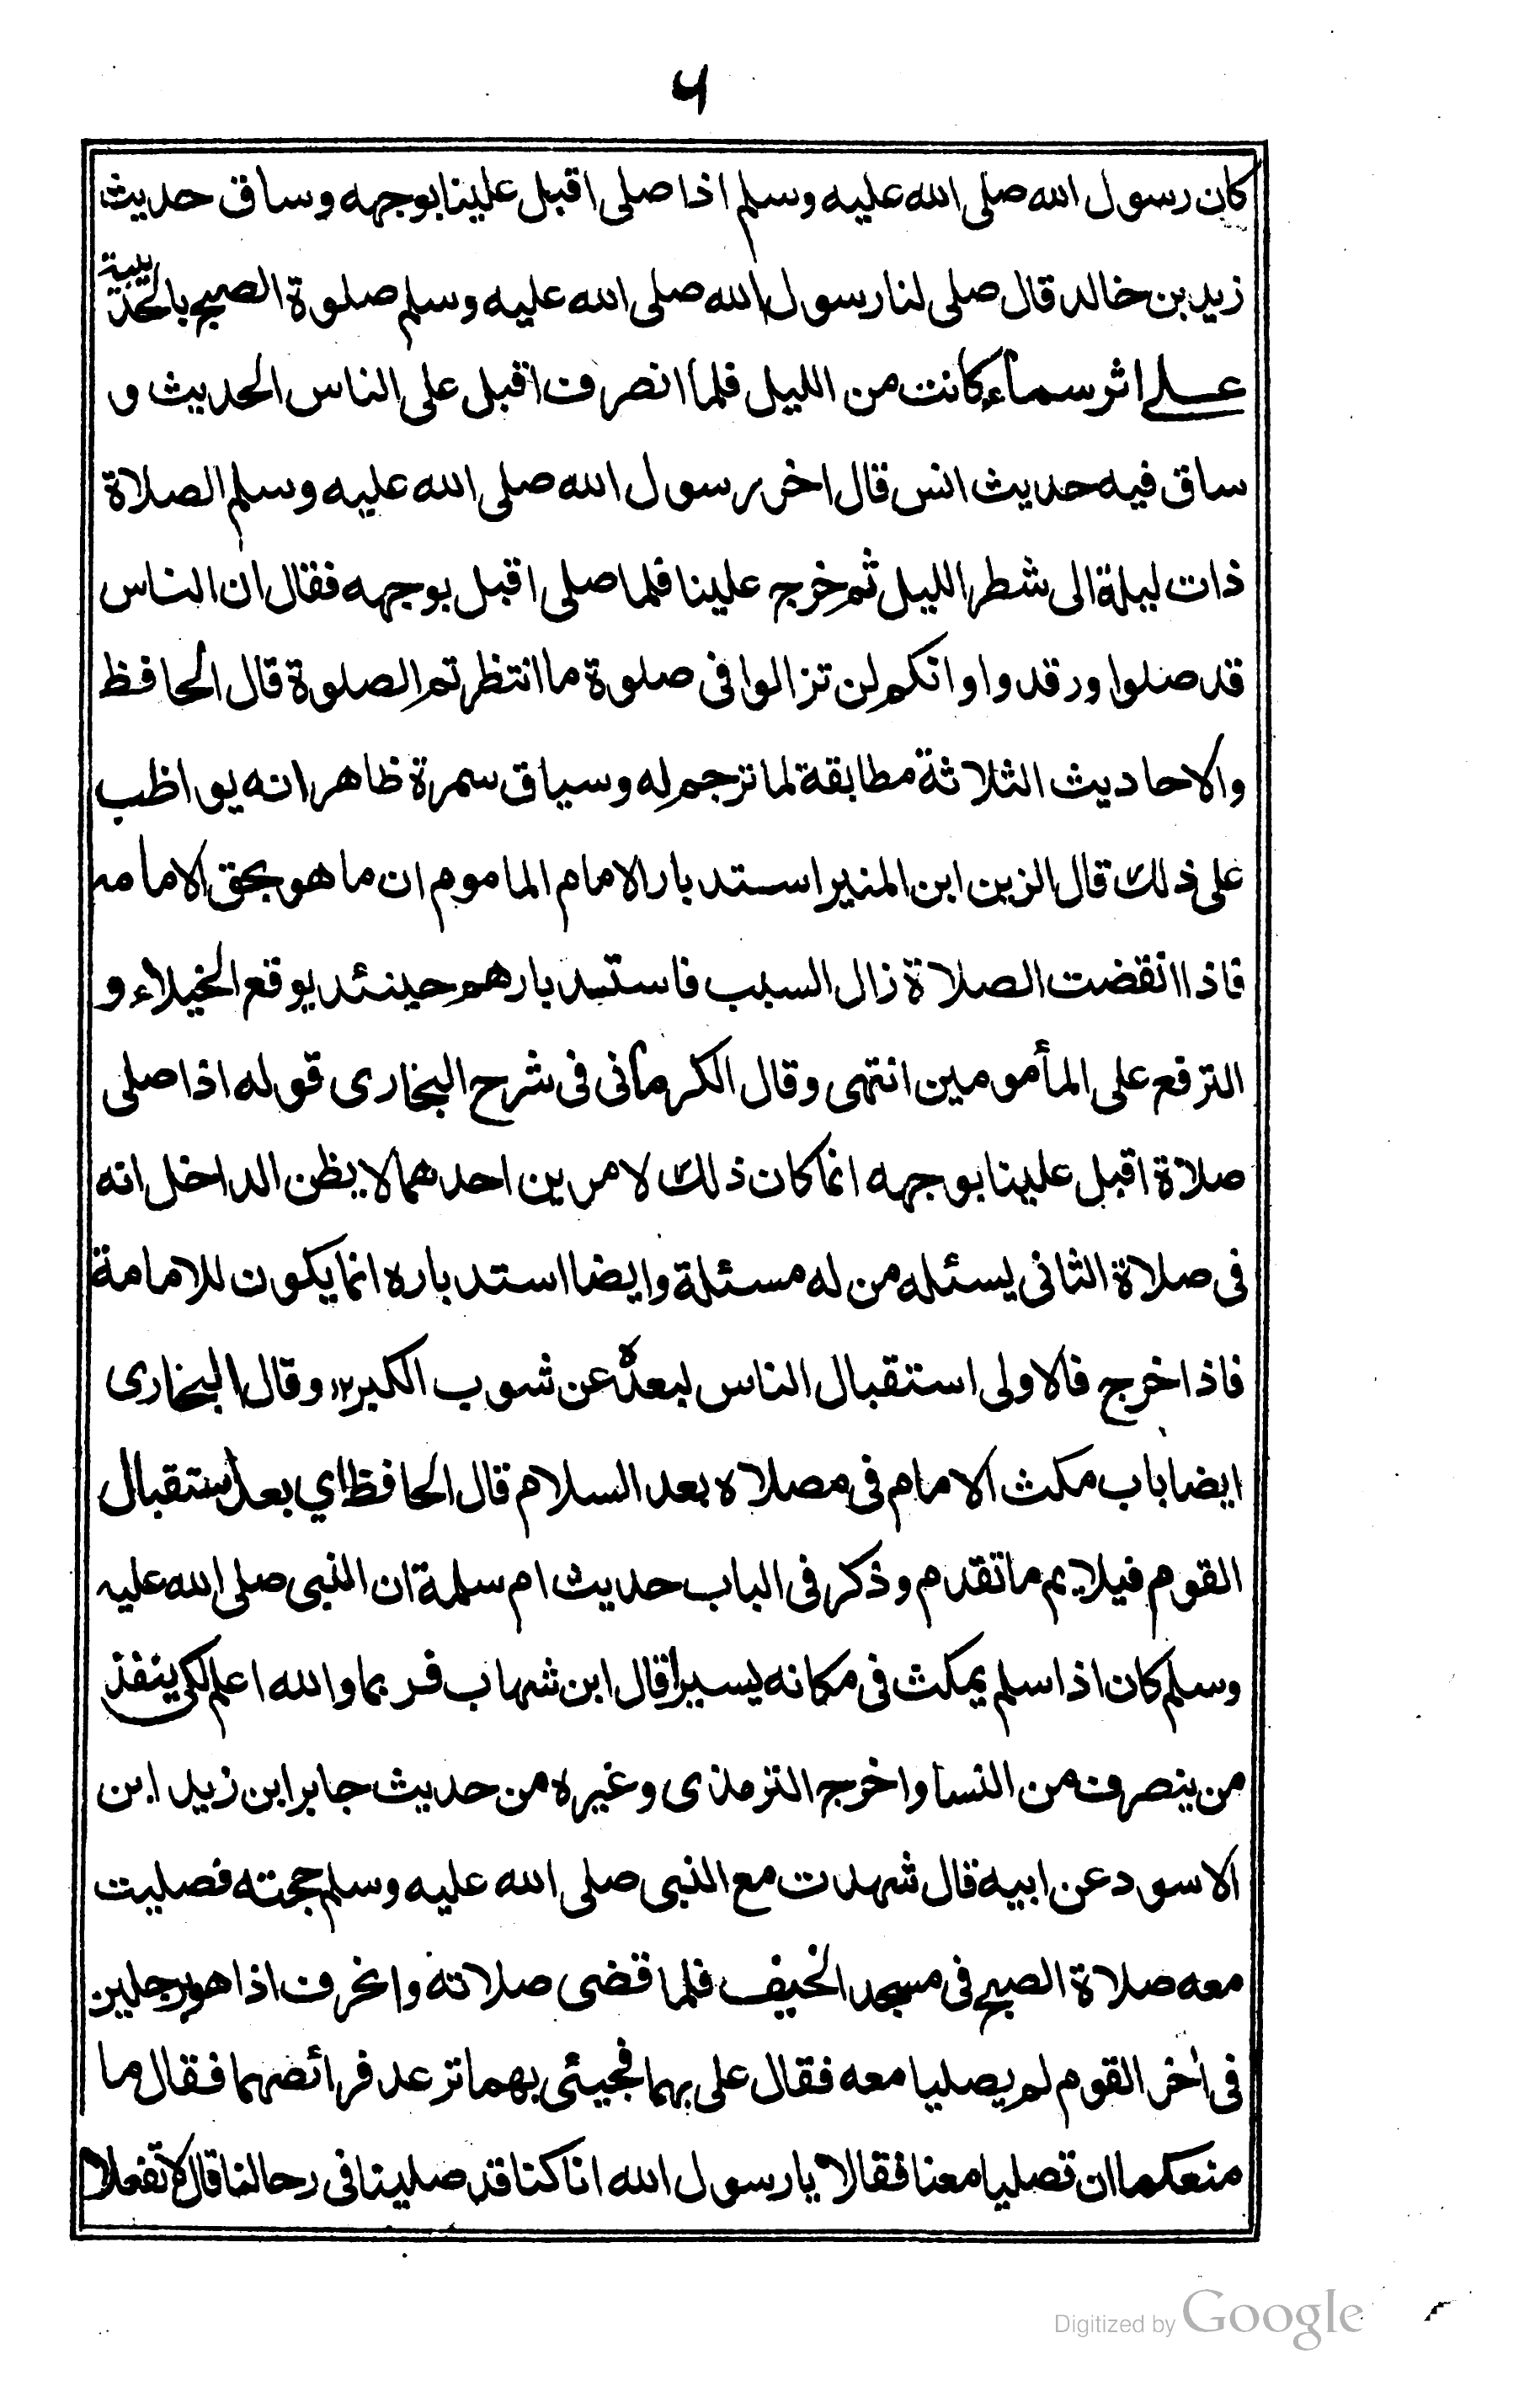 ۶
كان رسول الله صلى الله عليه وسلم اذا صلى اقبل علينا بوجهه وساق حديث
زيد بن خالد قال صلى لنا رسول الله صلى الله عليه وسلم صلوة الصبح بالحديبية
على اثر سماء كانت من الليل فلما انصرف اقبل على الناس الحديث و
ساق فيه حديث انس قال اخر رسول الله صلى الله عليه وسلم الصلاة
ذات ليلة الى شطر الليل ثم خرج علينا فلما صلى اقبل بوجهه فقال ان الناس
قد صلوا ورقدوا وانكم لن تزالوا فى صلوة ما انتظرتم الصلوة قال الحافظ
والاحاديث الثلاثة مطابقة لما ترجم له وسياق سمرة ظاهر انه يواظب
على ذلك قال الزين ابن المنير استدبار الامام الماموم ان ما هو بحق الامامه
فاذا انقضت الصلاة زال السبب فاستدبارهم حينئد يوقع الخيلاء و
الترفع على المأمومين انتهى وقال الكرمانى فى شرح البخارى قوله اذا صلى
صلاة اقبل علينا بوجهه انما كان ذلك لامرين احدهما لا يظن الداخل انه
فى صلاة الثانى يسئله من له مسئلة وايضا استدباره انما يكون للامامة
فاذا خرج فالاولى استقبال الناس لبعده عن شوب الكبر ۱۲ وقال البخارى
ايضا باب مكث الامام فى مصلاه بعد السلام قال الحافظ اي بعد استقبال
القوم فيلايم ما تقدم وذكر فى الباب حديث ام سلمة ان النبى صلى الله عليه
وسلم كان اذا سلم يمكث فى مكانه يسيرا قال ابن شهاب فربما والله اعلم لكى ينفذ
من ينصرف من النسا واخرج الترمذى وغيره من حديث جابر ابن زيد ابن
الاسود عن ابيه قال شهدت مع النبى صلى الله عليه وسلم حجته فصليت
معه صلاة الصبح فى مسجد الخيف فلما قضى صلاته وانحرف اذا هو برجلين
فى اخر القوم لم يصليا معه فقال على بهما فجيئى بهما ترعد فرائصهما فقال ما
منعكما ان تصليا معنا فقالا يا رسول الله انا كنا قد صلينا فى رحالنا قال لا تفعلا
Digitized by Google